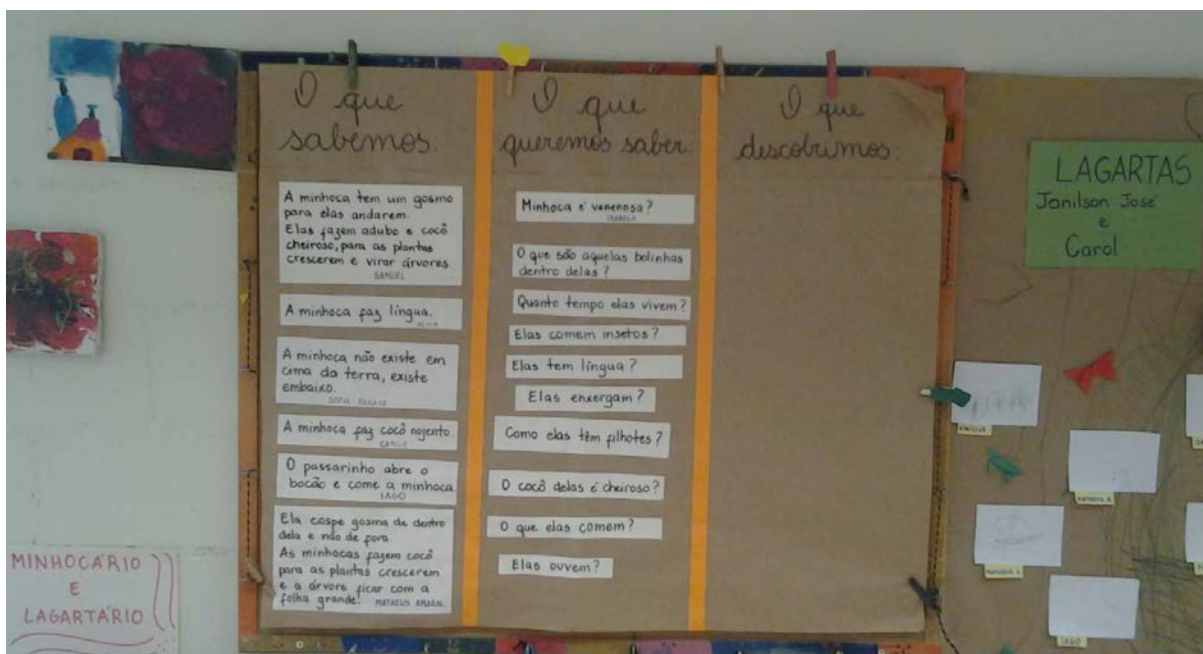 O que
sabemos:
A minhoca tem um gosmo
para elas andarem.
Elas fazem adubo e cocô
cheiroso, para as plantas
crescerem e virar árvores.
SAMUEL
A minhoca faz língua.
A minhoca não existe em
cima da terra, existe
embaixo.
SOFIA
A minhoca faz cocô nojento.
O passarinho abre o
bocão e come a minhoca.
IAGO
Ela cospe gosma de dentro
dela e não de fora.
As minhocas fazem cocô
para as plantas crescerem
e a árvore ficar com a
folha grande!
MATHEUS AMARAL
O que
queremos saber:
Minhoca é venenosa?
ISABELA
O que são aquelas bolinhas
dentro delas?
Quanto tempo elas vivem?
Elas comem insetos?
Elas tem língua?
Elas enxergam?
Como elas têm filhotes?
O cocô delas é cheiroso?
O que elas comem?
Elas ouvem?
O que
descobrimos:
LAGARTAS
Jonilson José
e
Carol
VINICIUS
IAGO
MINHOCÁRIO
E
LAGARTÁRIO